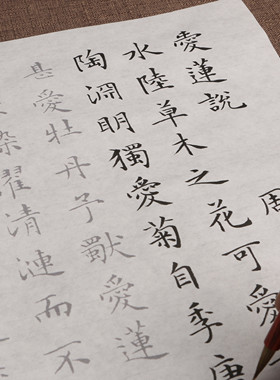 愛蓮說 周
水陸草木之花可愛
陶淵明獨愛菊自季唐
甚愛牡丹予獸愛蓮
染濯清漣而不